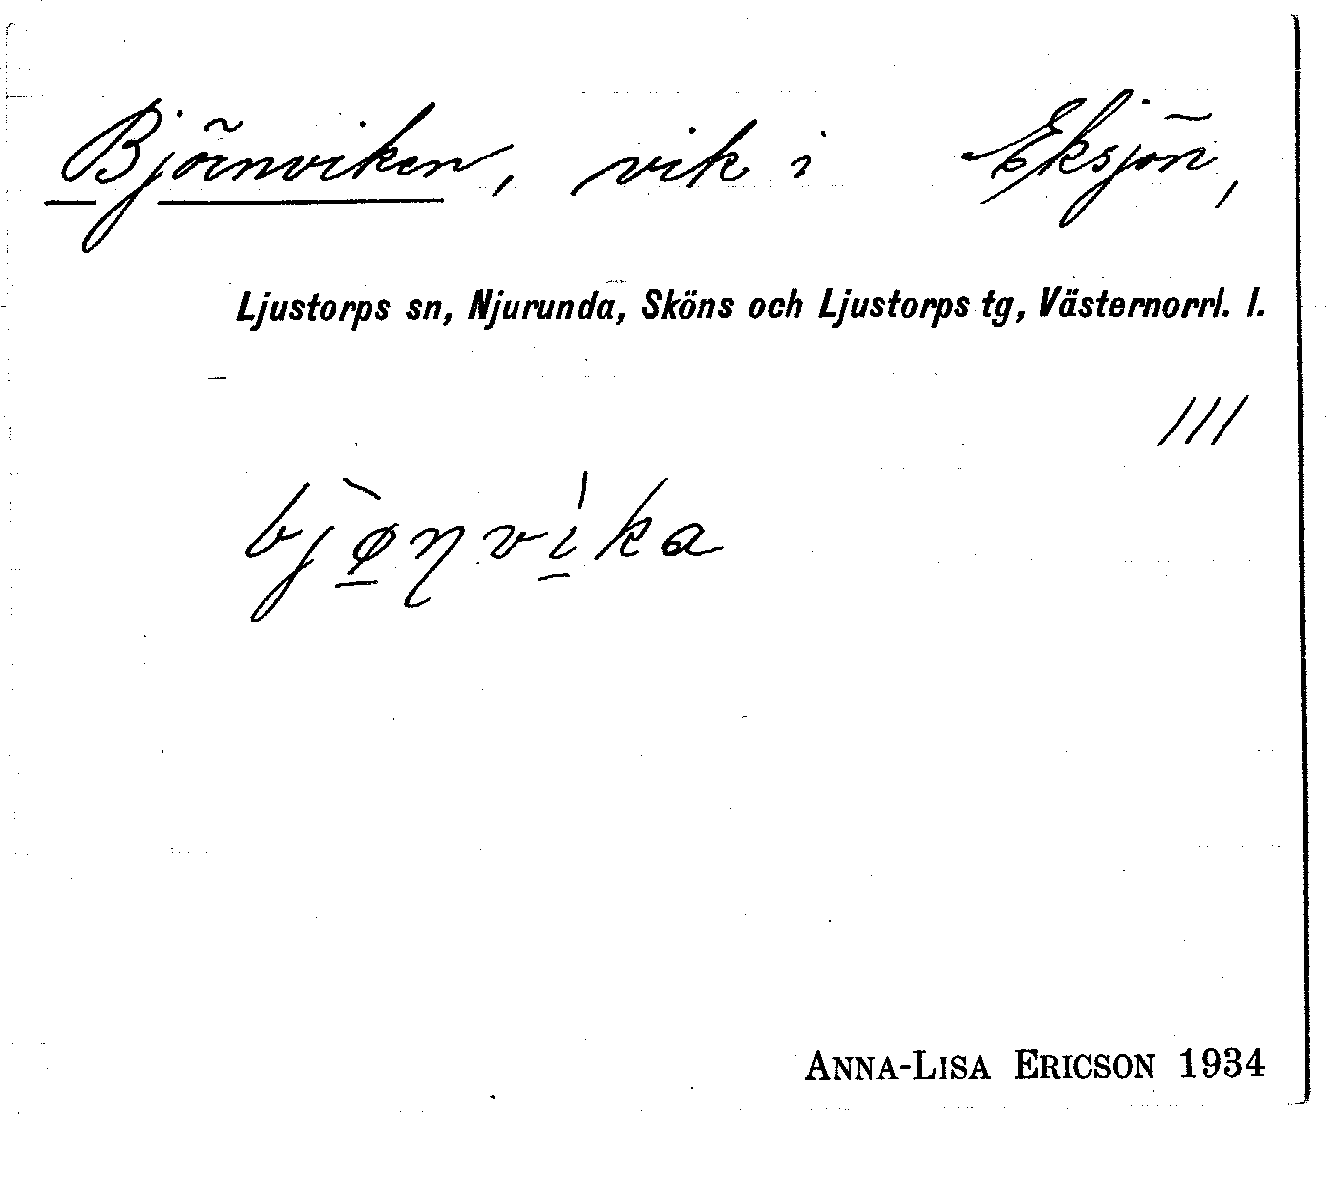 Björnviken, vik i Eksjön,
Ljustorps sn, Njurunda, Sköns och Ljustorps tg, Västernorrl. l.
///
bjø̱̀ŋvi̱̍ka
ANNA-LISA ERICSON 1934